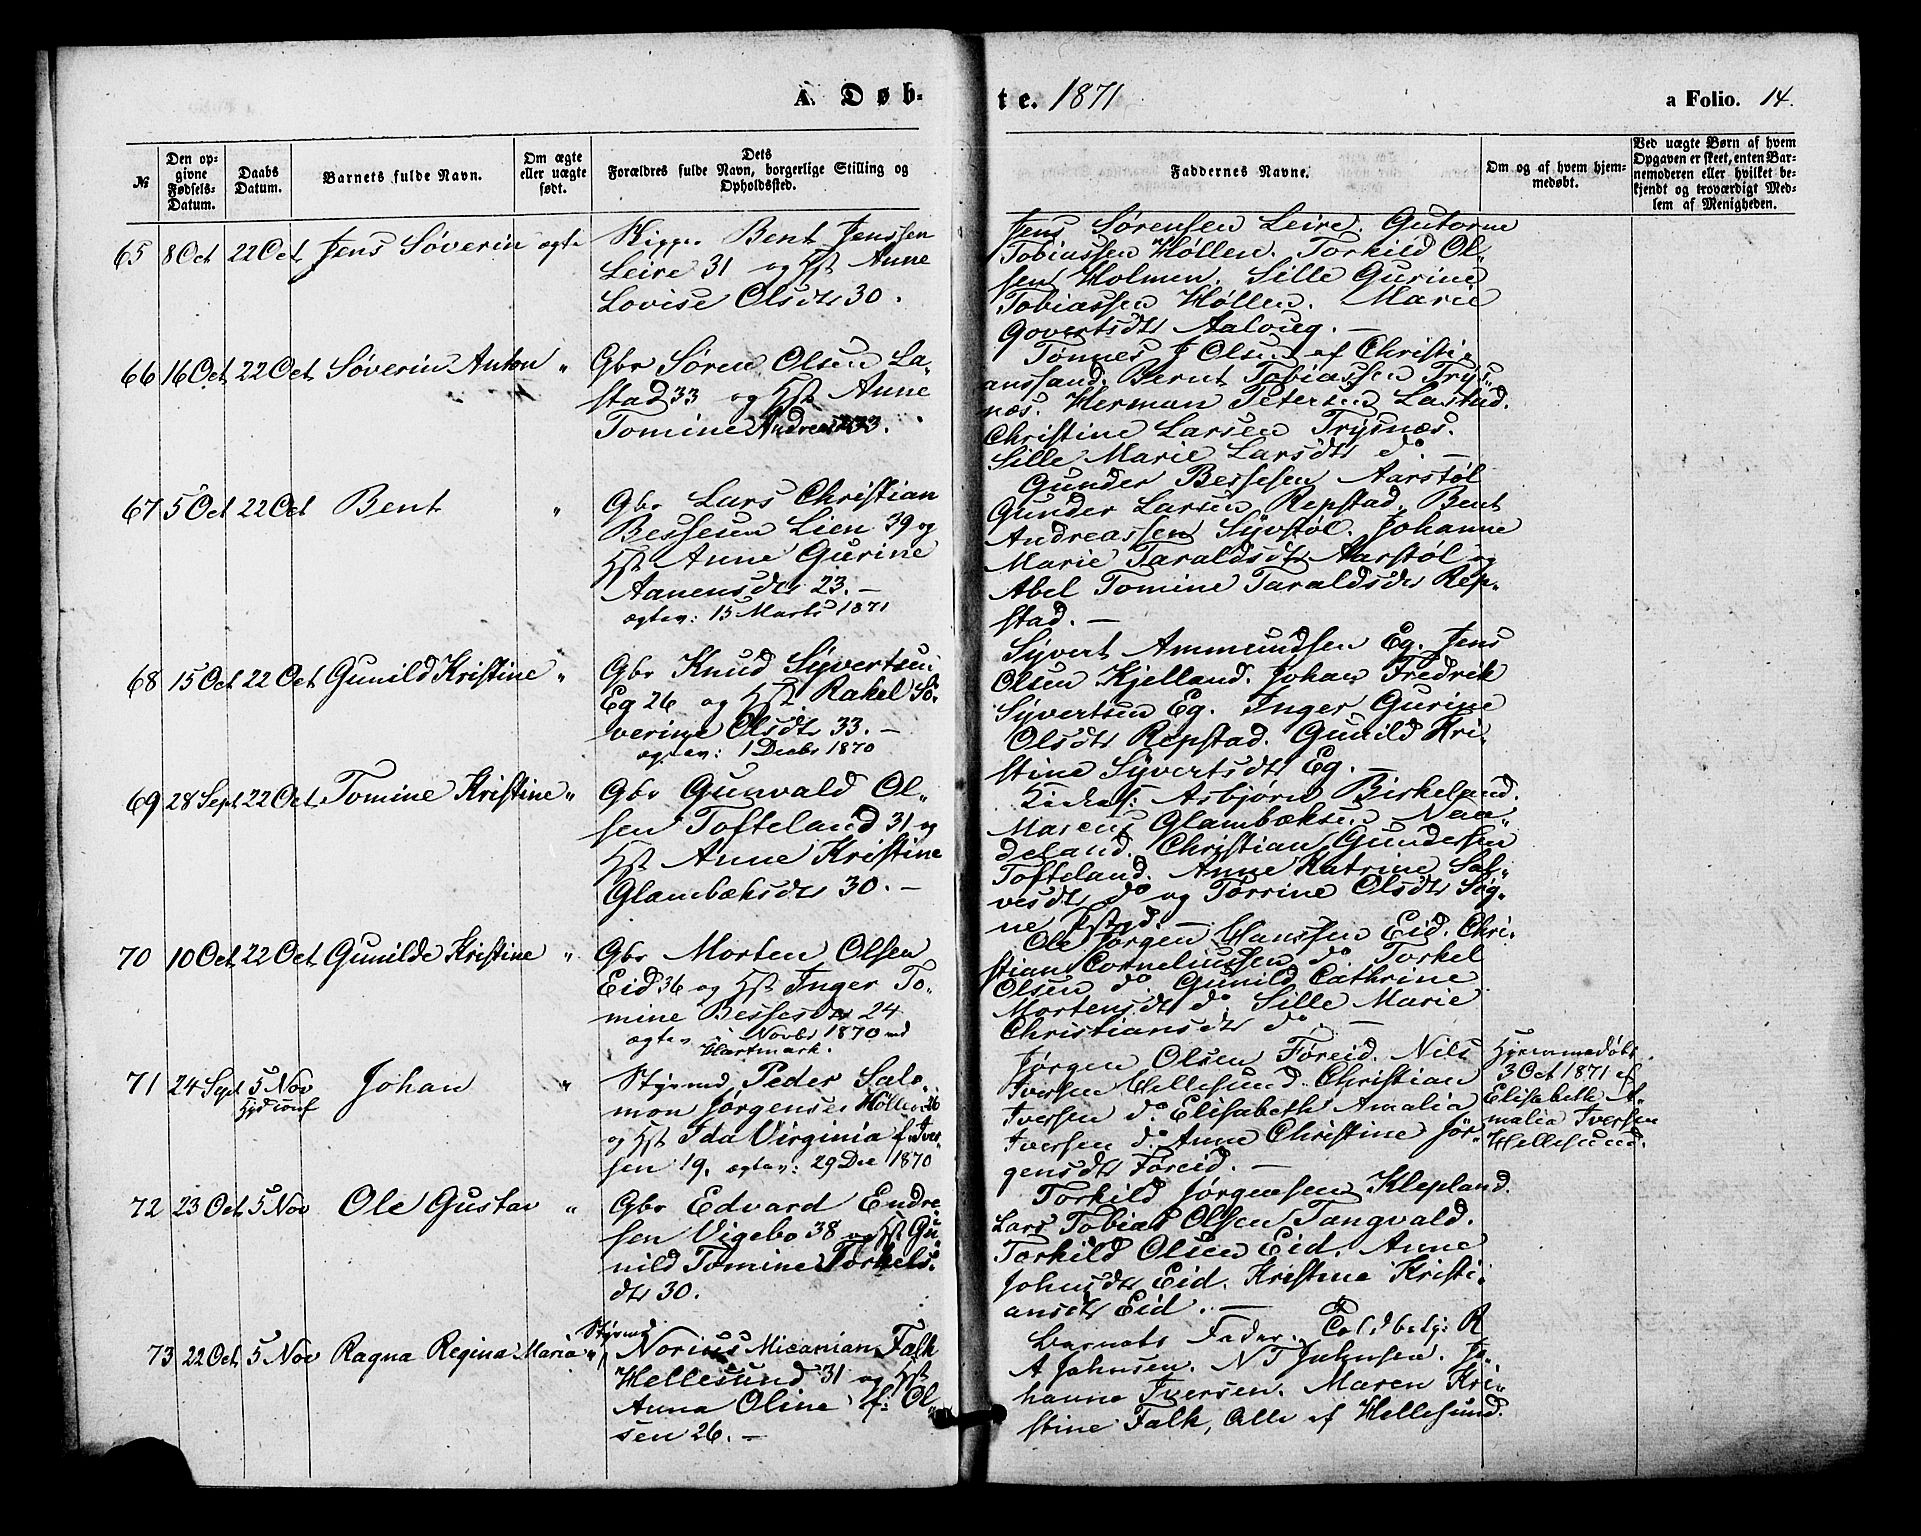 A. Døb-
te. 1871
a Folio. 14.
№
Den op-
givne
Fødsels-
Datum.
Daabs
Datum.
Barnets fulde Navn.
Om ægte
eller uægte
født.
Dets
Forældres fulde Navn, borgerlige Stilling og
Opholdssted.
Faddernes Navne.
Om og af hvem hjem-
medøbt.
Ved uægte Børn af hvem
Opgaven er skeet, enten Bar-
nemoderen eller hvilket be-
kjendt og troværdigt Med-
lem af Menigheden.
65 8 Oct 22 Oct Jens Søverin ægte
Bent Jenssen
Leire 31 og Hst Anne
Lovise Olsdtr 30.
Jens Sørensen Leire. Gutorm
Tobiassen Høllen. Torkild Ol-
sen Holmen. Sille Gurine
Tobiassen Høllen. Marie
Govertsdtr
66 16 Oct 22 Oct Søverin Anton "
Gbr Søren Olsen La-
stad 33 og Hst Anne
Tomine 33.
Tønnes J Olsen af Christi-
anssand. Bernt Tobiassen Trys-
næs. Herman Petersen Lastad.
Christine Larsen Trysnæs.
Sille Marie Larsdtr do. —
67 5 Oct 22 Oct Bent "
Gbr Lars Christian
Bessesen Lien 39 og
Hst Anne Gurine
Aanensdtr 23. —
ægtev: 15 Marts 1871
Gunder Bessesen Aarstøl
Gunder Larsen Repstad. Bent
Andreassen Syvstøl. Johanne
Marie Taraldsdtr Aarstøl og
Abel Tomine Taraldsdtr Rep-
stad. —
68 15 Oct 22 Oct Gunild Kristine "
Gbr Knud Syvertsen
Eg 26 og Hst Rakel Sø-
verine Olsdtr 33. —
ægtev: 1 Decbr 1870
Syvert Ammundsen Eg. Jens
Olsen Kjelland. Johan Fredrik
Syvertsen Eg. Inger Gurine
Olsdtr Repstad. Gunild Kri-
stine Syvertsdtr Eg. —
69 28 Sept 22 Oct Tomine Kristine "
Gbr Gunvald Ol-
sen Tofteland 31 og
Hst Anne Kristine
Glambæksdtr 30. —
Asbjørn Birkeland.
Marcus Glambæksen Nau-
deland. Christian Gundersen
Tofteland. Anne Katrine Sal-
vesdtr do og Torrine Olsdtr Søg-
ne
70 10 Oct 22 Oct Gunilde Kristine "
Gbr Morten Olsen
Eid 36 og Hst Inger To-
mine Bessesdtr 24
ægtev: Novbr 1870 ved
Hartmark.
Ole Jørgen Hanssen Eid. Chri-
stian Corneliussen do. Torkel
Olsen do. Gunild Cathrine
Mortensdtr do. Sille Marie
Christiansdtr do —
71 24 Sept 5 Nov Johan "
Styrmd Peder Salo-
mon Jørgensen Høllen 26
og Hst Ida Virginia f. Iver-
sen 19. ægtev: 29 Dec 1870
Jørgen Olsen Føreid. Nils
Iversen Hellesund. Christian
Iversen do. Elisabeth Amalia
Iversen do. Anne Christine Jør-
gensdtr Føreid. —
Hjemmedøbt
3 Oct 1871 af
Elisabeth A-
malia Iversen
Hellesund.
72 23 Oct 5 Nov Ole Gustav "
Gbr Edvard Endre-
sen Vigebo 38 og Hst Gu-
nild Tomine Torkels-
dtr 30.
Torkild Jørgensen Klepland.
Lars Tobias Olsen Tangvald.
Torkild Olsen Eid. Anne
Johnsdtr Eid. Kristine Kristi-
ansdtr Eid. —
73 22 Oct 5 Nov Ragna Regina Maria "
Styrmd
Norius Micanian Falk
Hellesund 31 og Hst
Anna Oline f: Ol-
sen 26. —
Barnets Fader. Toldbetj: R
A Johnsen. N T Johnsen. Jo-
hanne Iversen. Maren Kri-
stine Falk, Alle af Hellesund.